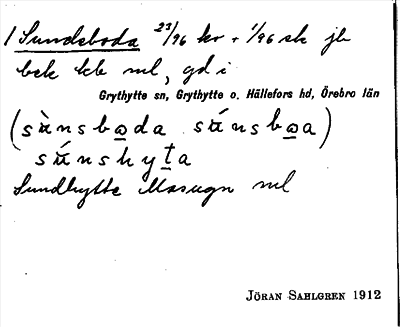 1 Sundsboda 23/96 kr + 1/96 sk jb
bek kb ml, gd i
Grythytte sn, Grythytte o. Hällefors hd, Örebro län
(sùnsboda súnsboa)
súnshyta
Sundhytte Masugn ml
JÖRAN SAHLGREN 1912